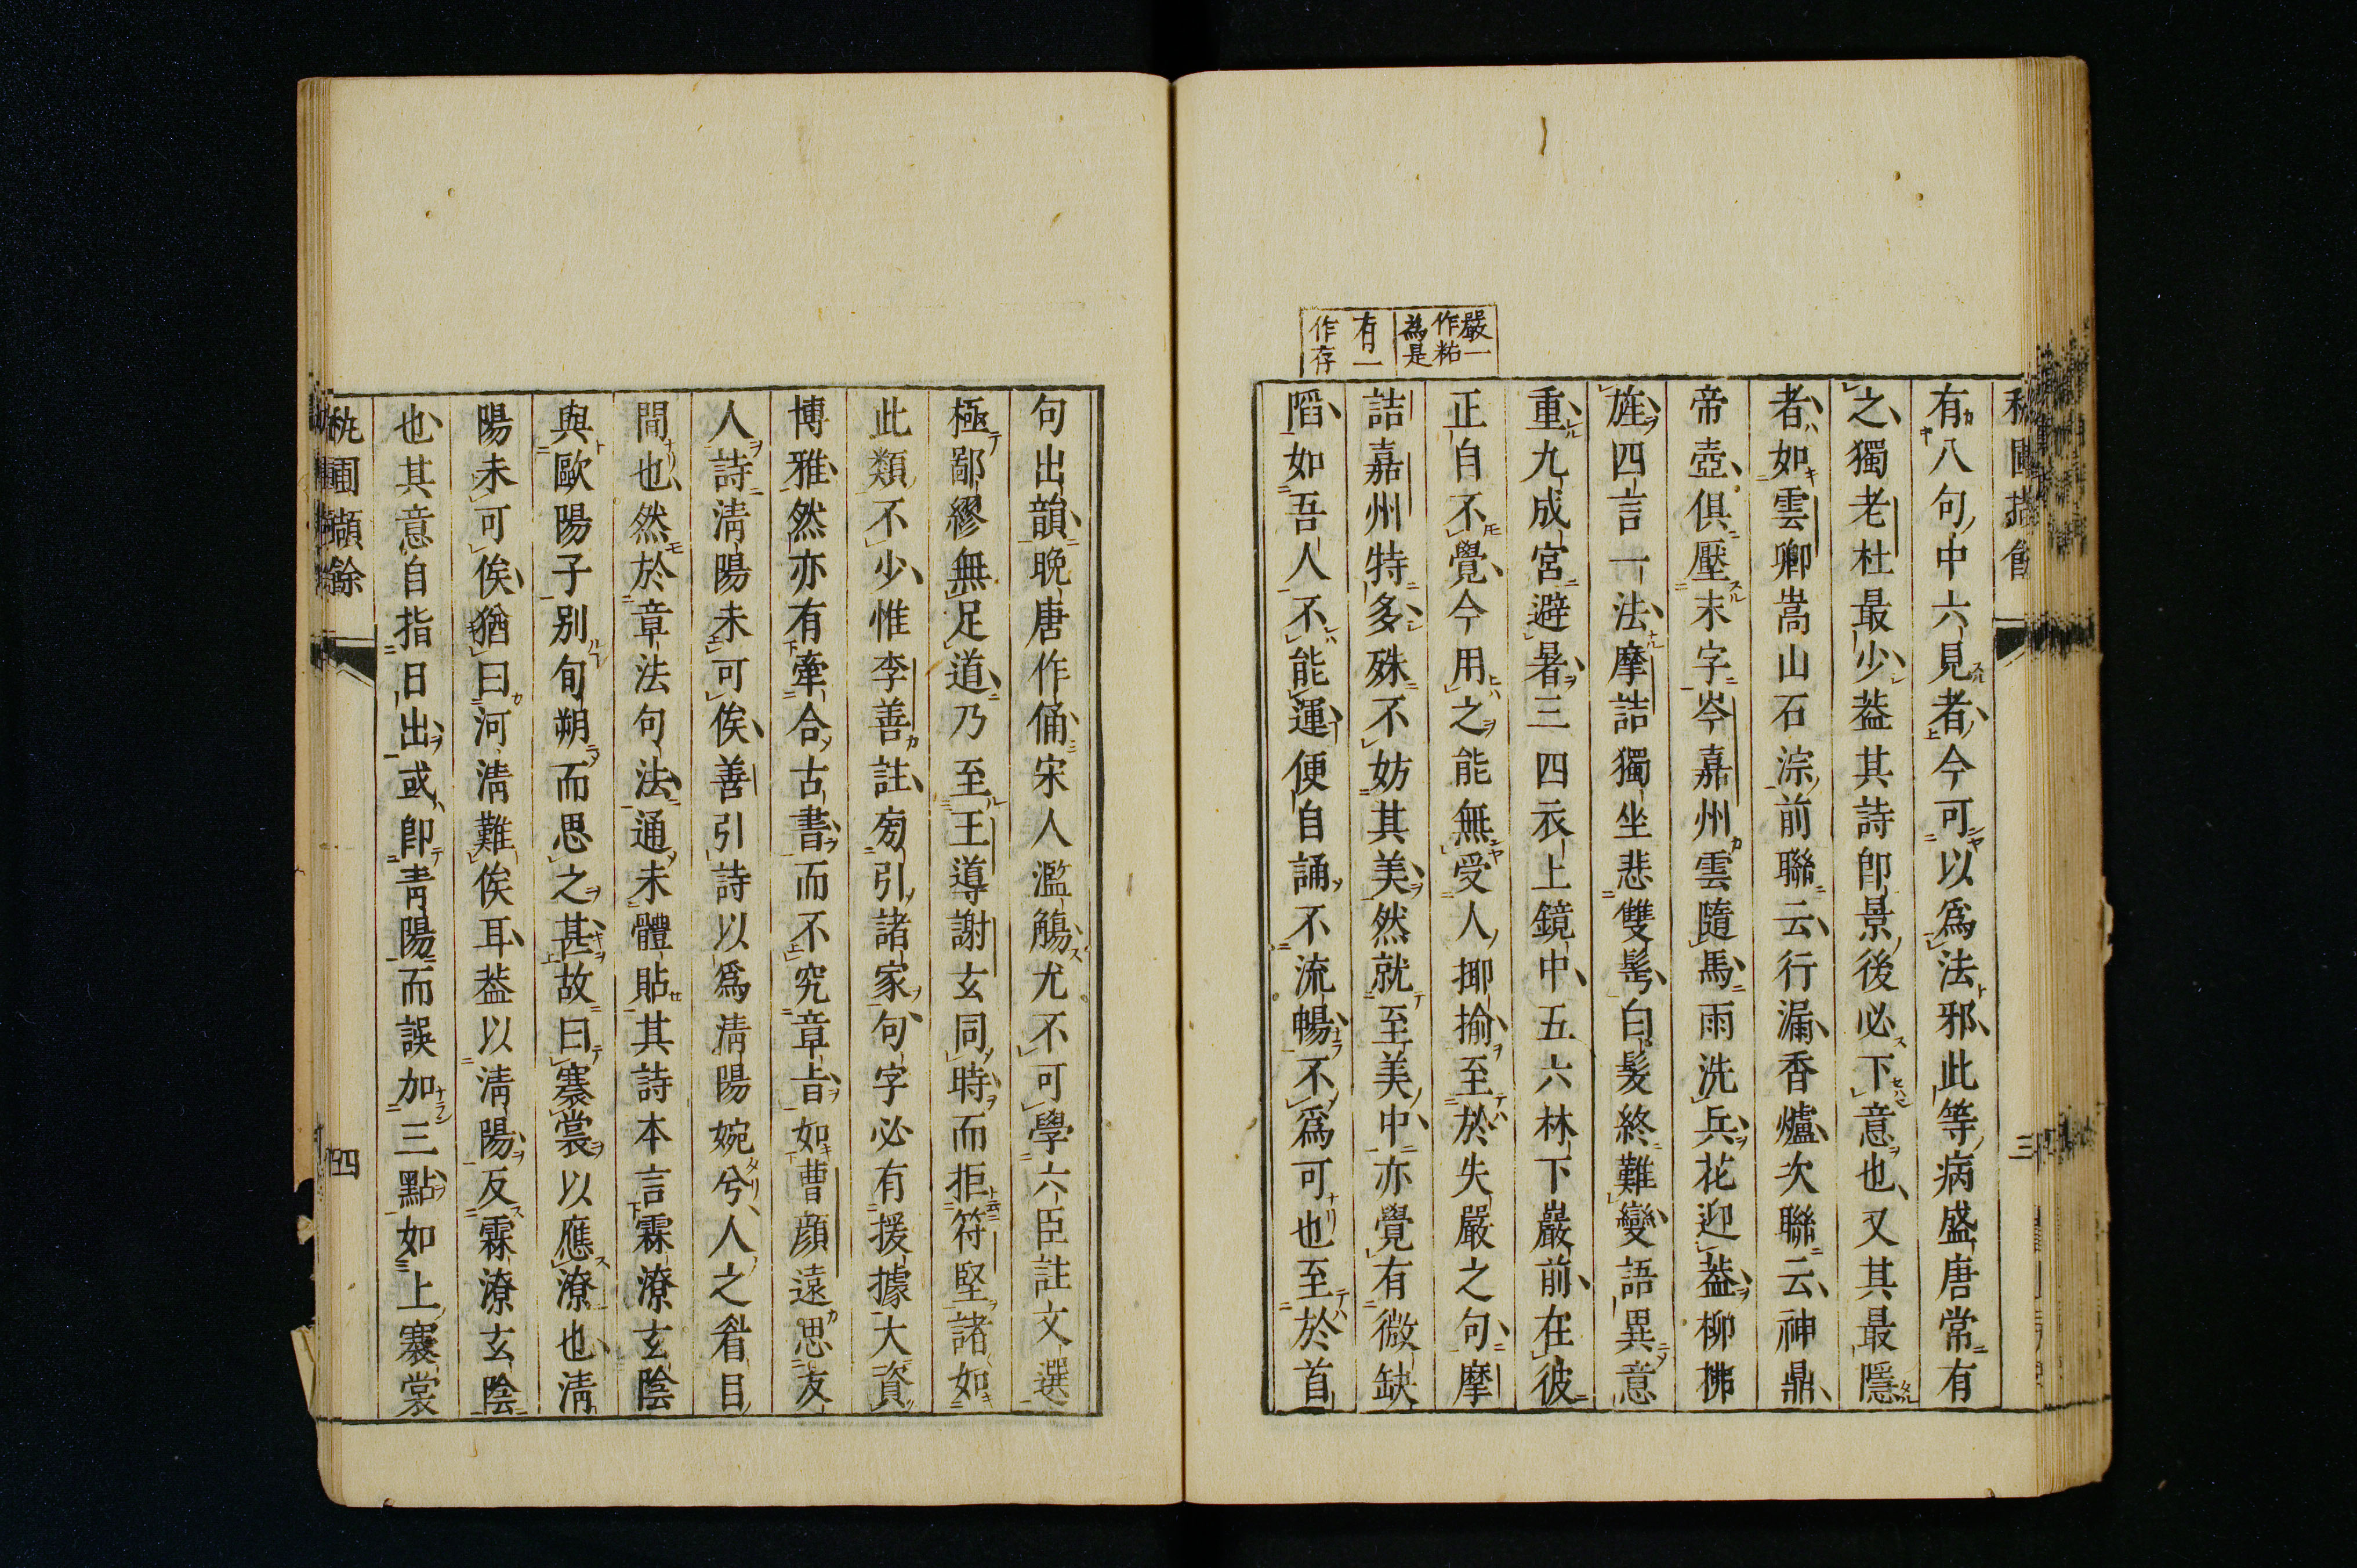 嚴一
作粘
為是
有一
作存
有八句中六見者今可以爲法邪此等病盛唐常有
之獨老杜最少葢其詩卽景後必下意也又其最隱
者如雲卿嵩山石淙前聯云行漏香爐次聯云神鼎
帝壺俱壓末字岑嘉州雲隨馬雨洗兵花迎葢柳拂
旌四言一法摩詰獨坐悲雙鬂白髮終難變語異意
重九成宮避暑三四衣上鏡中五六林下巖前在彼
正自不覺今用之能無受人揶揄至於失嚴之句摩
詰嘉州特多殊不妨其美然就至美中亦覺有微缺
陷如吾人不能運便自誦不流暢不爲可也至於首
三
句出韻晚唐作俑宋人濫觴尤不可學六臣註文選
極鄙繆無足道乃至王導謝玄同時而拒符堅諸如
此類不少惟李善註旁引諸家句字必有援據大資
博雅然亦有牽合古書而不究章旨如曹顔遠思友
人詩淸陽未可俟善引詩以爲淸陽婉兮人之眉目
間也然於章法句法通未體貼其詩本言霖潦玄陰
與歐陽子別旬朔而思之甚故曰褰裳以應潦也淸
陽未可俟猶曰河淸難俟耳葢以淸陽反霖潦玄陰
也其意自指日出或卽靑陽而誤加三點如上褰裳
秇圃擷餘
四